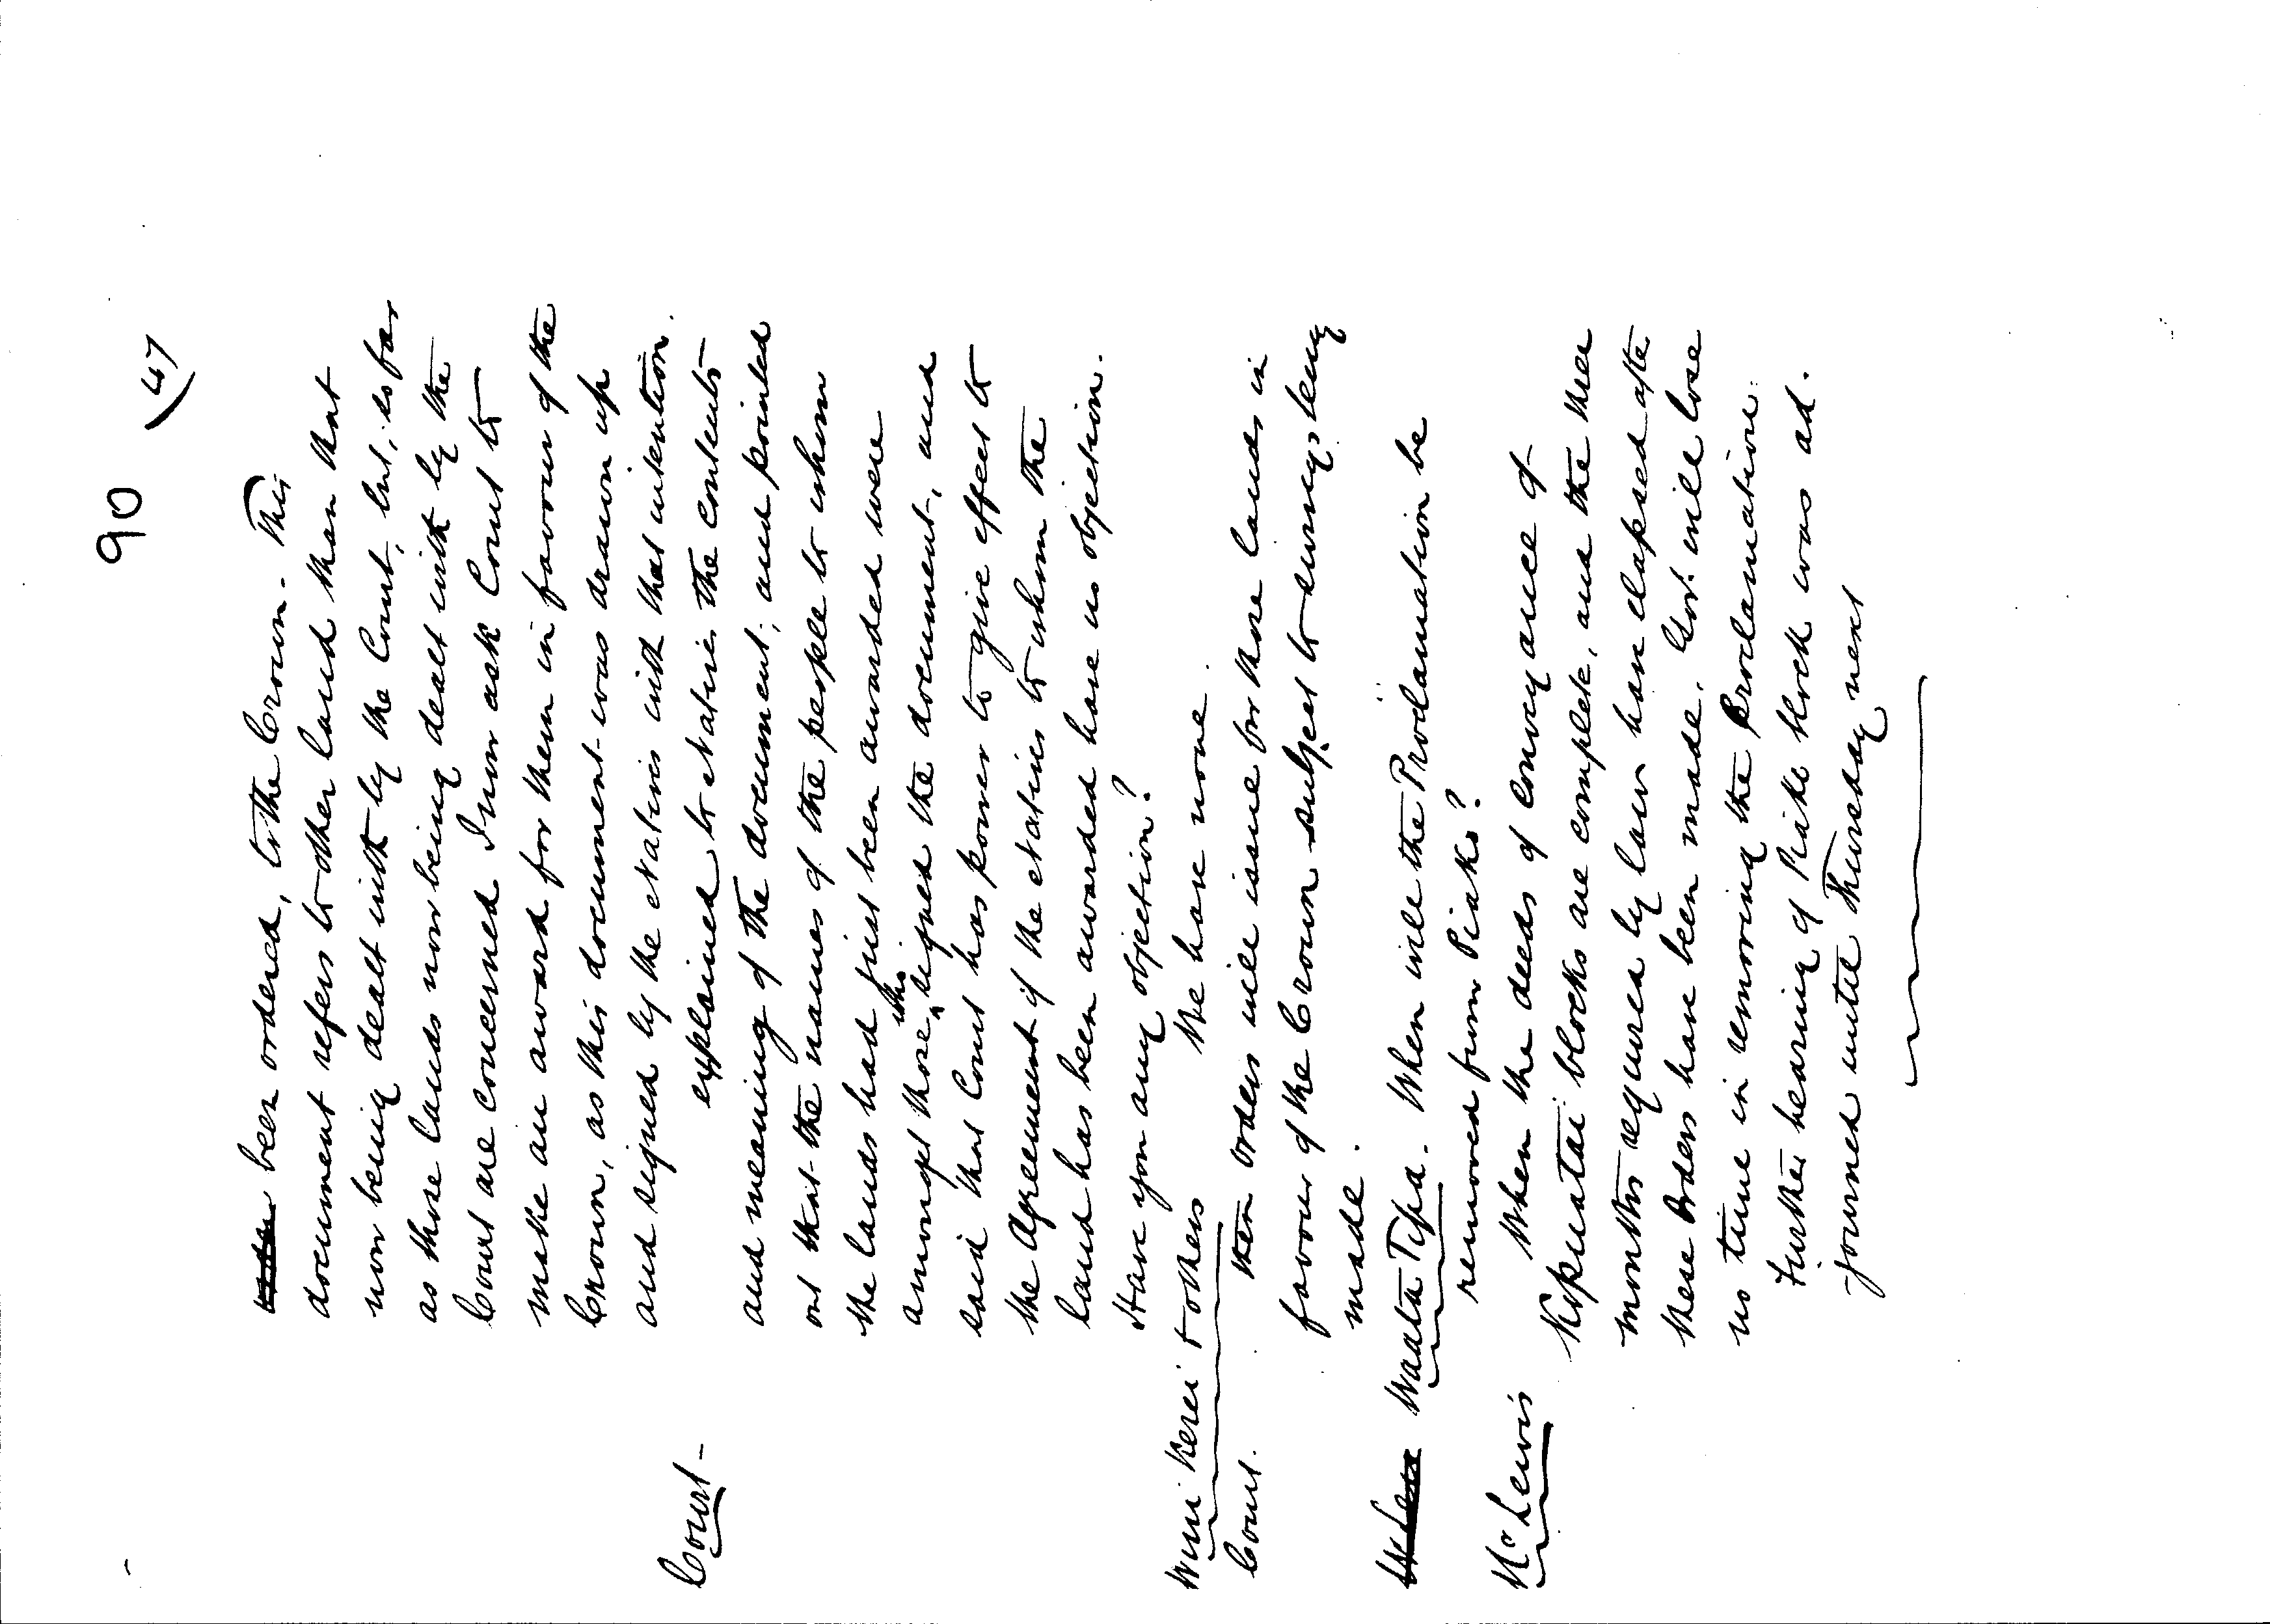 90
(47
been ordered, to the Crown. This
document refers to other land than that
now being dealt with by the Court, but, so far
as those lands now being dealt with by the
Court are concerned I now ask Court to
make an award for them in favour of the
Crown, as this document was drawn up
and signed by the Natives with that intention.
Court - explained to Natives the contents
and meaning of the document; and pointed
out that the names of the people to whom
the lands had just been awarded were
amongst those who signed the document, and
said that Court has power to give effect to
the Agreement if the Natives to whom the
land has been awarded have no objection.
Have you any objection?
Wini Kerei & others We have none.
Court. Then orders will issue for these lands in
favour of the Crown subject to surveys being
made.
Waata Tipa. When will the Proclamation be
removed from Piako?
Mr Lewis When the deeds of conveyance of
Kopuatai blocks are complete, and the three
months required by law have elapsed after
these Orders have been made, Govt. will lose
no time in removing the Proclamation.
Further hearing of Piako block was ad-
journed until Thursday next